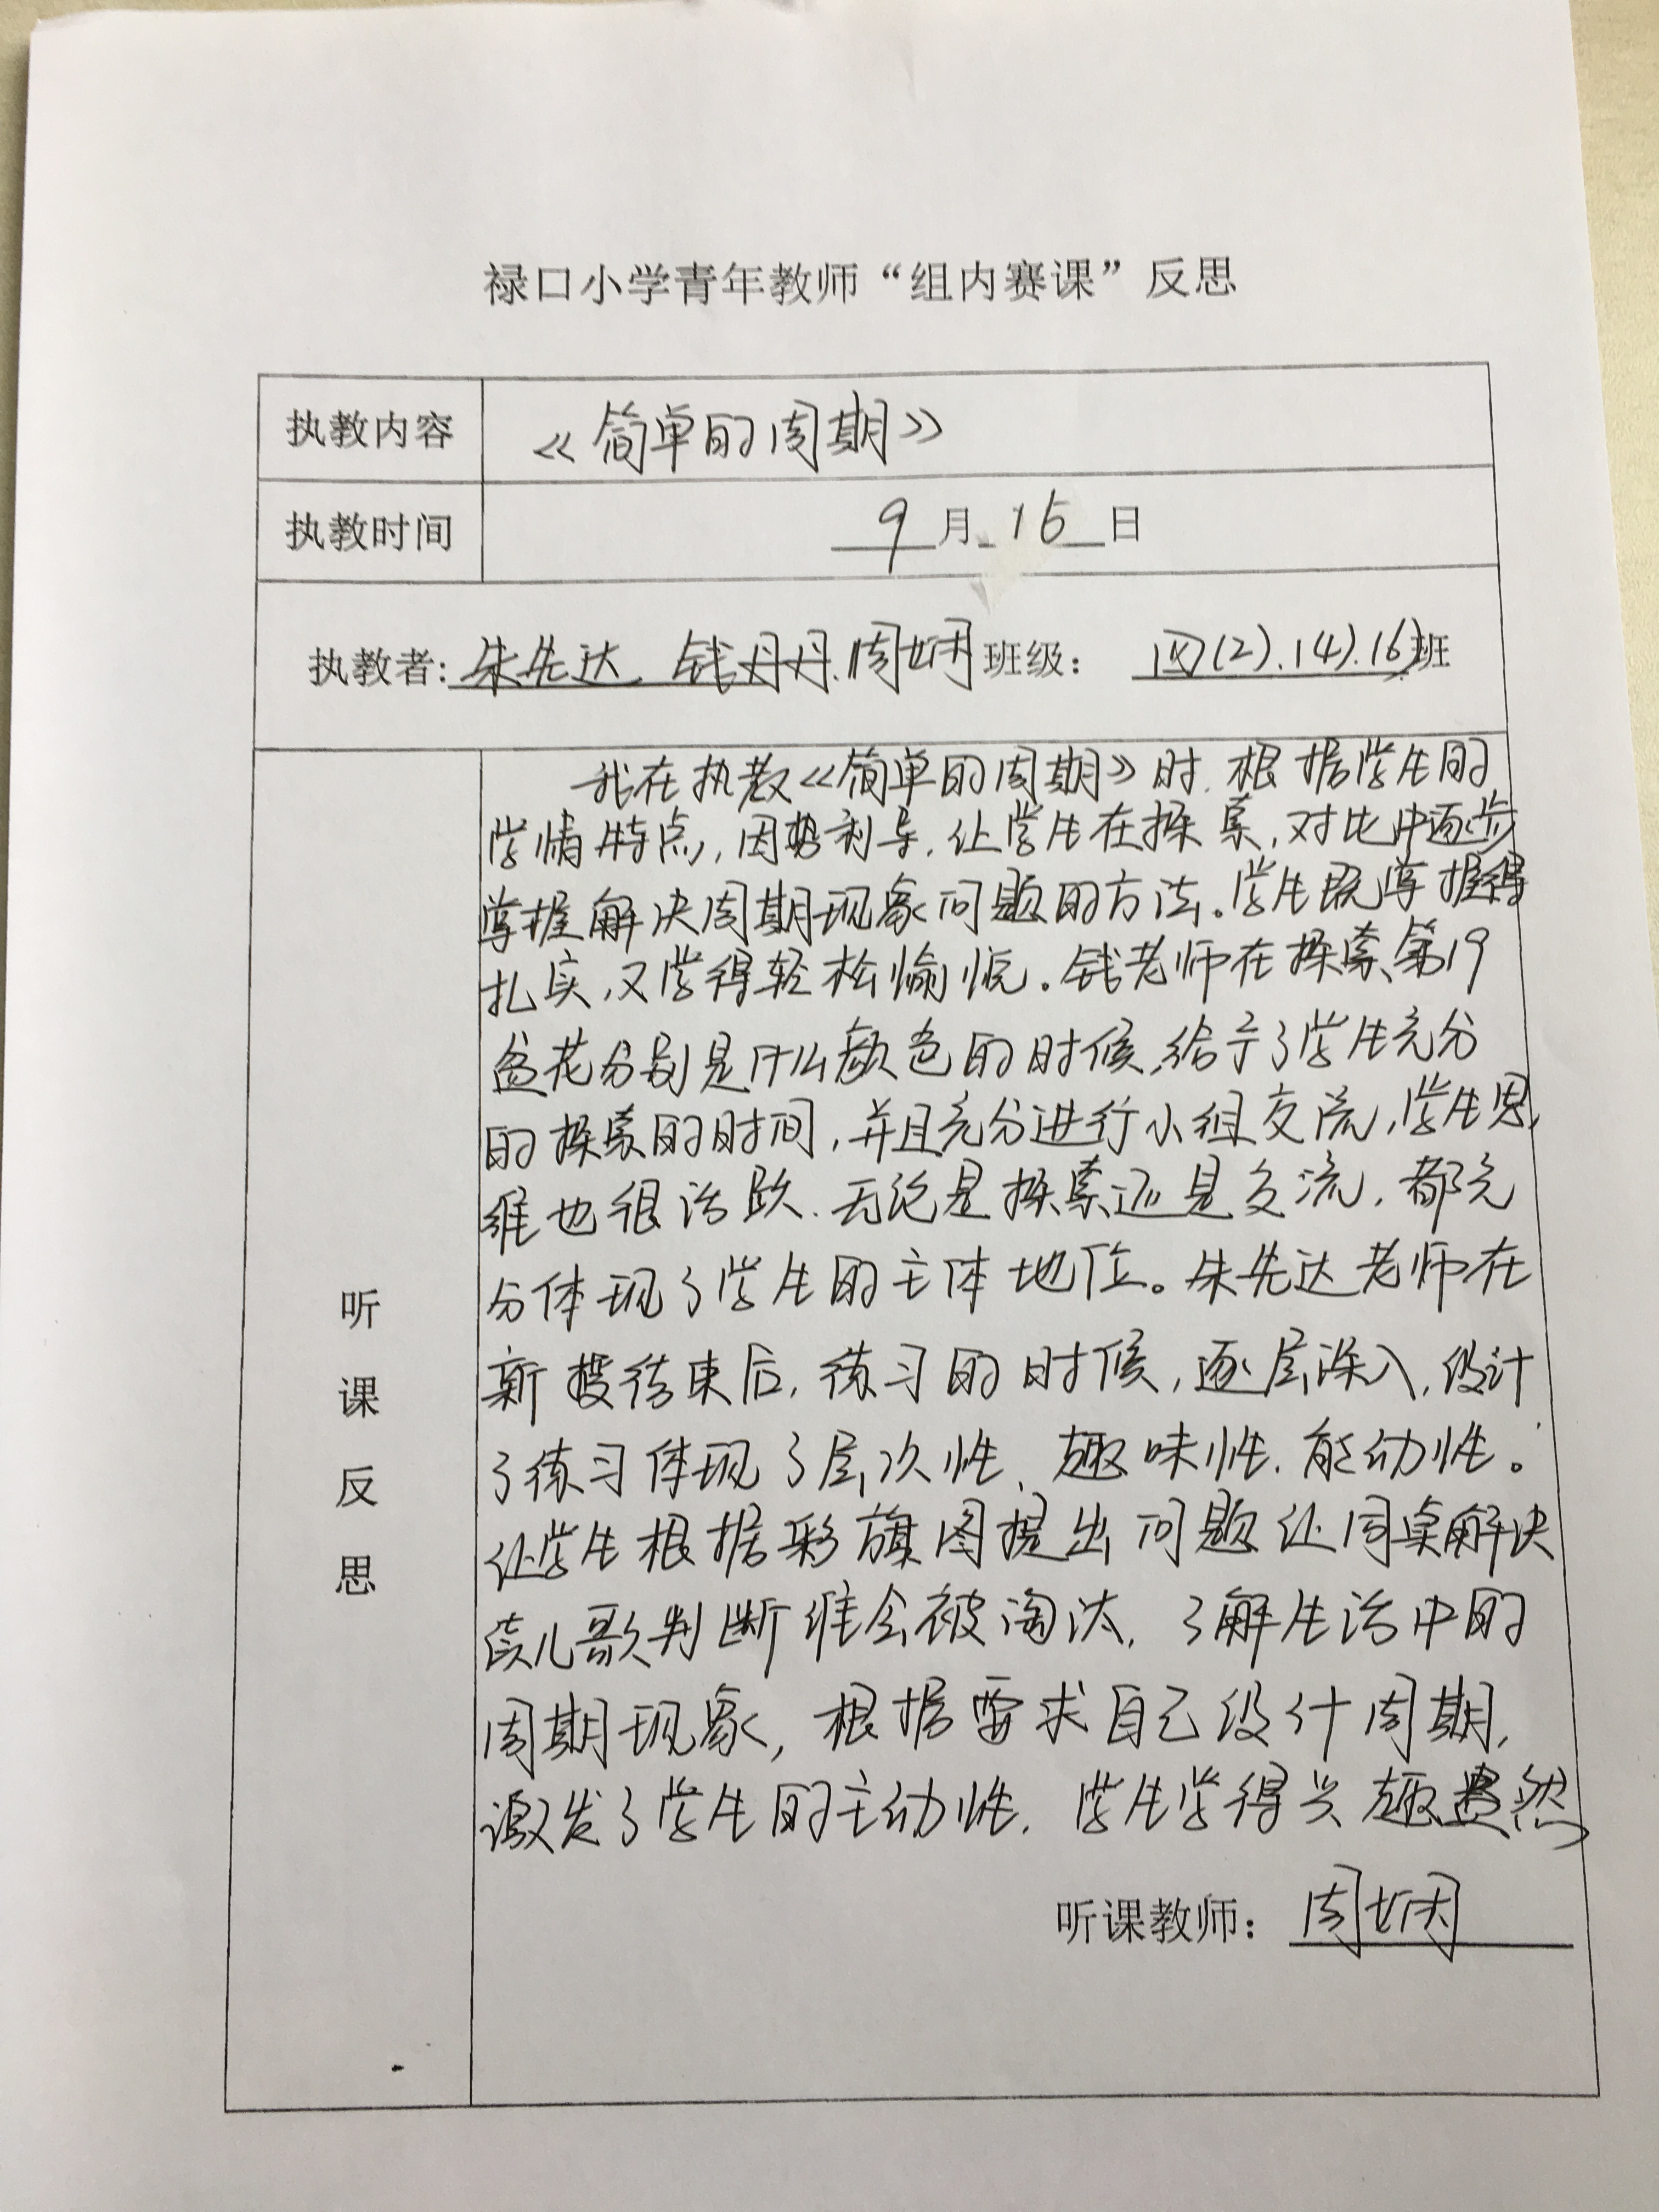 禄口小学青年教师“组内赛课”反思
执教内容 《简单的周期》
执教时间 9月15日
执教者：朱先达 钱丹丹.周姻 班级：四(2).(4).(6)班
听课反思
我在执教《简单的周期》时.根据学生的
学情特点,因势利导.让学生在探索,对比中逐步
掌握解决周期现象问题的方法。学生既掌握得
扎实,又学得轻松愉悦。钱老师在探索第19
盆花分别是什么颜色的时候,给予了学生充分
的探索的时间,并且充分进行小组交流,学生思
维也很活跃.无论是探索还是交流,都充
分体现了学生的主体地位。朱先达老师在
新授结束后,练习的时候,逐层深入,设计
了练习体现了层次性、趣味性.能动性。
让学生根据彩旗图提出问题让同桌解决
读儿歌判断谁会被淘汰,了解生活中的
周期现象,根据要求自己设计周期,
激发了学生的主动性.学生学得兴趣盎然
听课教师：周姻